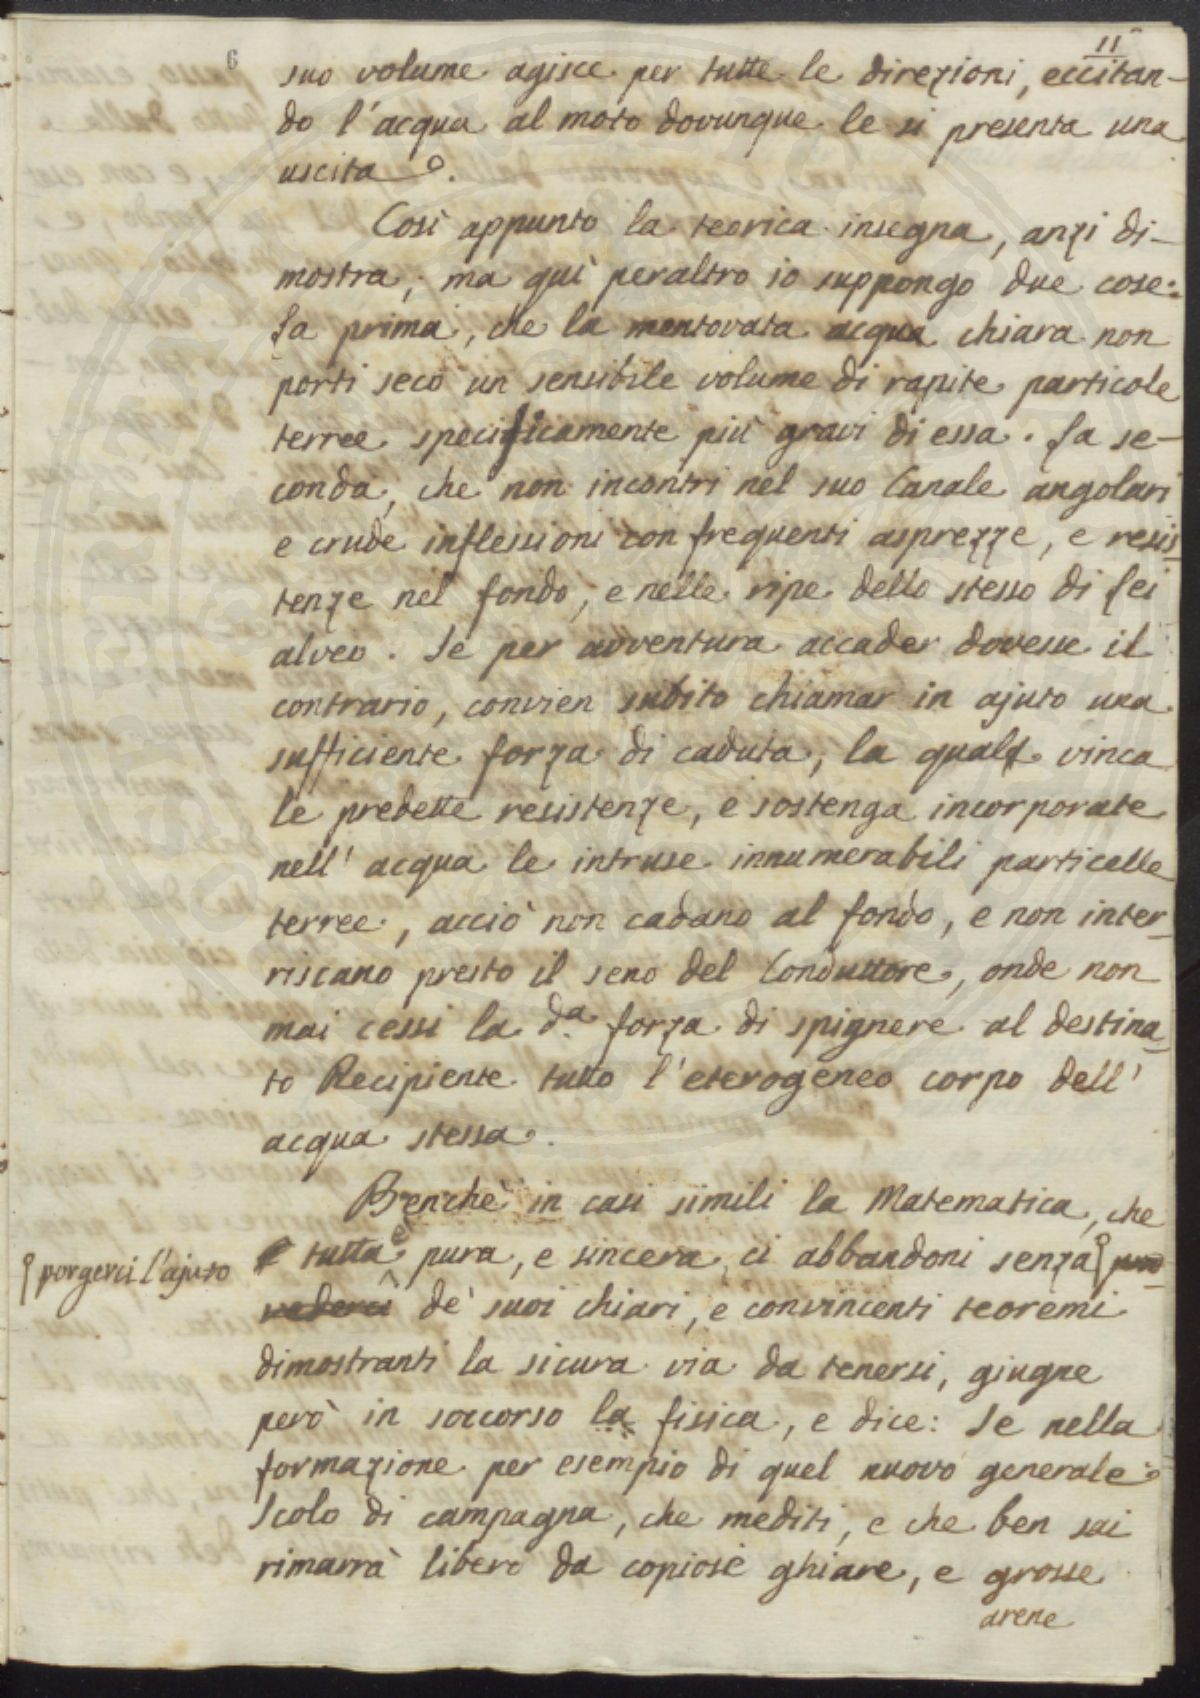 11
6
suo volume agisce per tutte le direzioni, eccitan-
do l'acqua al moto dovunque le si presenta una
uscita.
Così appunto la teorica insegna, anzi di-
mostra; ma quì peraltro io suppongo due cose:
La prima, che la mentovata acqua chiara non
porti seco un sensibile volume di rapite particole
terree specificamente più gravi di essa. La se-
conda, che non incontri nel suo Canale angolari
e crude inflessioni con frequenti asprezze, e resis-
tenze nel fondo, e nelle ripe dello stesso di lei
alveo. Se per avventura accader dovesse il
contrario, convien subito chiamar in ajuto una
sufficiente forza di caduta, la quale vinca
le predette resistenze, e sostenga incorporate
nell'acqua le intruse innumerabili particelle
terree, acciò non cadano al fondo, e non inter-
riscano presto il seno del Conduttore, onde non
mai cessi la d.a forza di spignere al destina-
to Recipiente tutto l'eterogeneo corpo dell'
acqua stessa.
Benchè in casi simili la Matematica, che
è tutta pura, e sincera, ci abbandoni senza pro-
porgerci l'ajuto
vederci de' suoi chiari, e convincenti teoremi
dimostranti la sicura via da tenersi, giugne
però in soccorso la fisica, e dice: Se nella
formazione per esempio di quel nuovo generale
Scolo di campagna, che mediti, e che ben sai
rimarrà libero da copiose ghiare, e grosse
arene